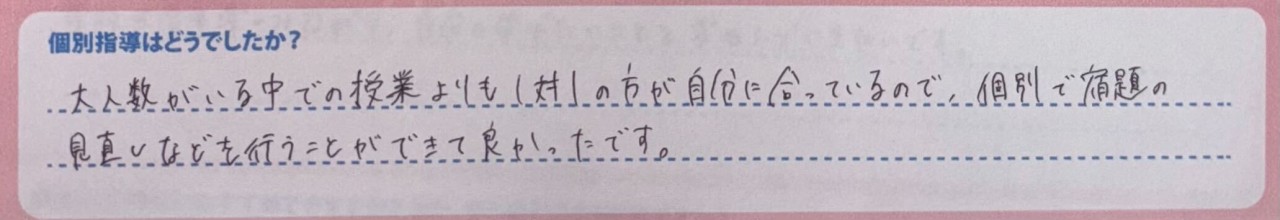 個別指導はどうでしたか?
大人数がいる中での授業よりも1対1の方が自分に合っているので、個別で宿題の
見直しなどを行うことができて良かったです。